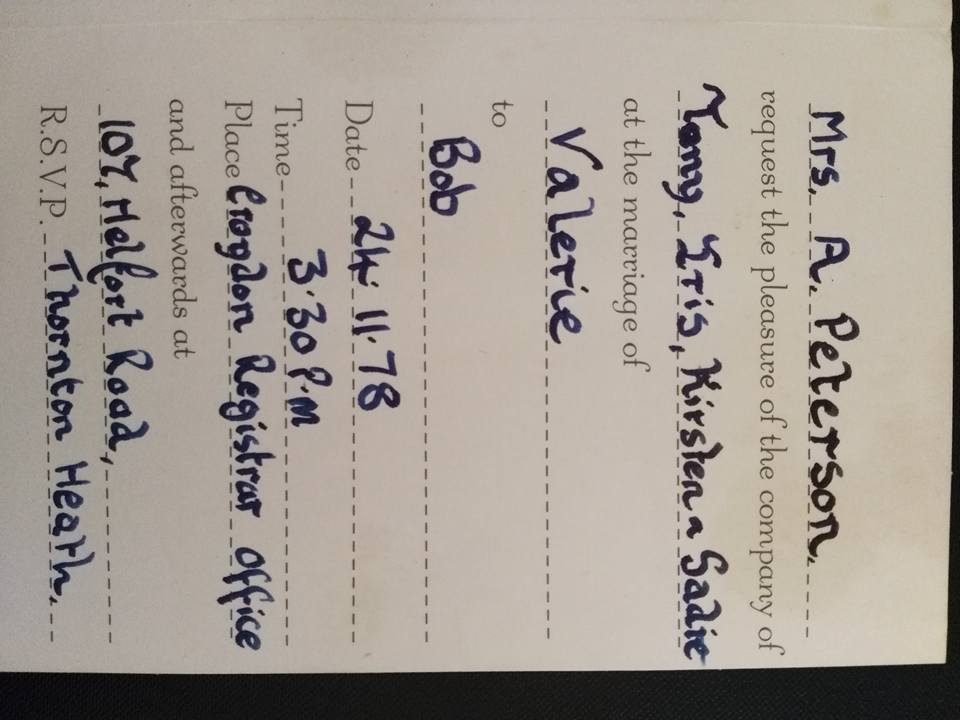 Mrs. A. Peterson.
request the pleasure of the company of
Tony, Iris, Kirsten a Sadie
at the marriage of
Valerie
to
Bob
Date 24. 11. 78
Time 3.30 P.M
Place Croydon Registrar Office
and afterwards at
107, Melfort Road,
R.S.V.P. Thornton Heath.